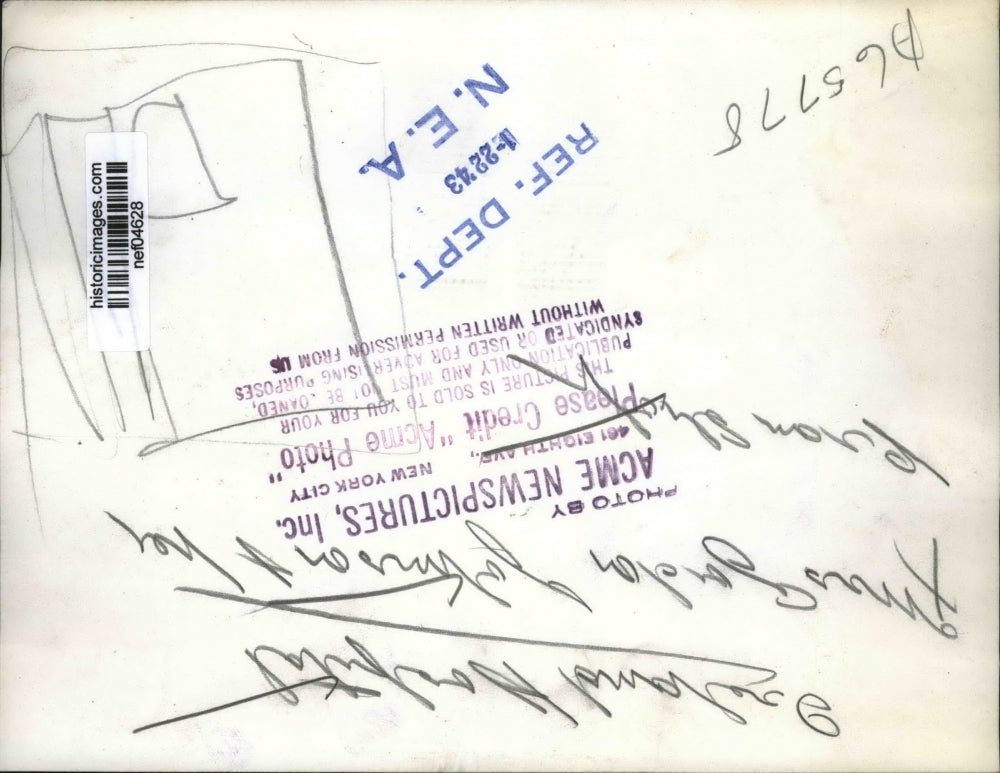 Hospital
Mrs Gordon Johnson & her
PHOTO BY
ACME NEWSPICTURES, Inc.
461 EIGHTH AVE., NEW YORK CITY
Please Credit "Acme Photo"
THIS PICTURE IS SOLD TO YOU FOR YOUR
PUBLICATION ONLY AND MUST NOT BE LOANED,
SYNDICATED OR USED FOR ADVERTISING PURPOSES
WITHOUT WRITTEN PERMISSION FROM US
REF. DEPT.
1-22'43
N. E. A.
historicimages.com
nef04628